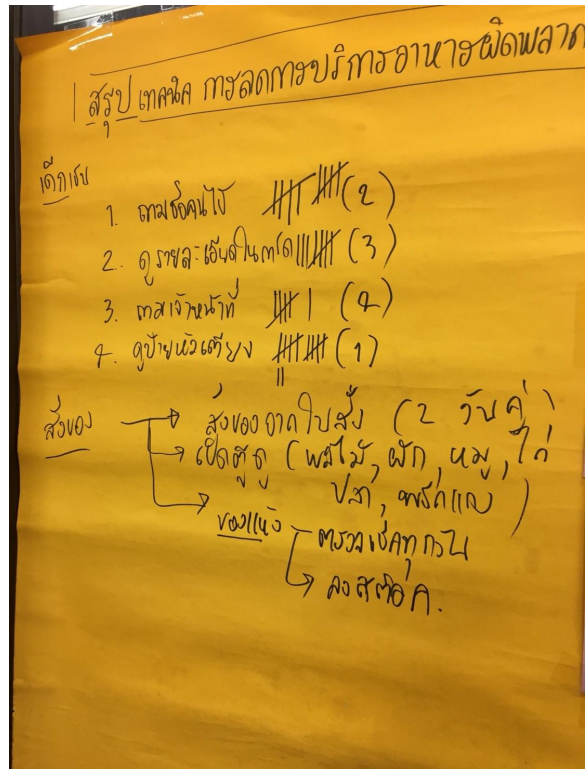 สรุป เทคนิค การลดการบริการอาหารผิดพลาด
เด็กเซบ
1. ถามชื่อคนไข้ (2)
2. ดูรายละเอียดในการ์ด (3)
3. ถามเจ้าหน้าที่ (4)
4. ดูป้ายหัวเตียง (1)
สั่งของ
สั่งของจากใบสั่ง (2 วันคู่)
เปิดตู้ดู (ผลไม้, ผัก, หมู, ไก่
ปลา, พริกแกง)
ของแห้ง
ตรวจเช็คทุกวัน
ลงสต๊อค.